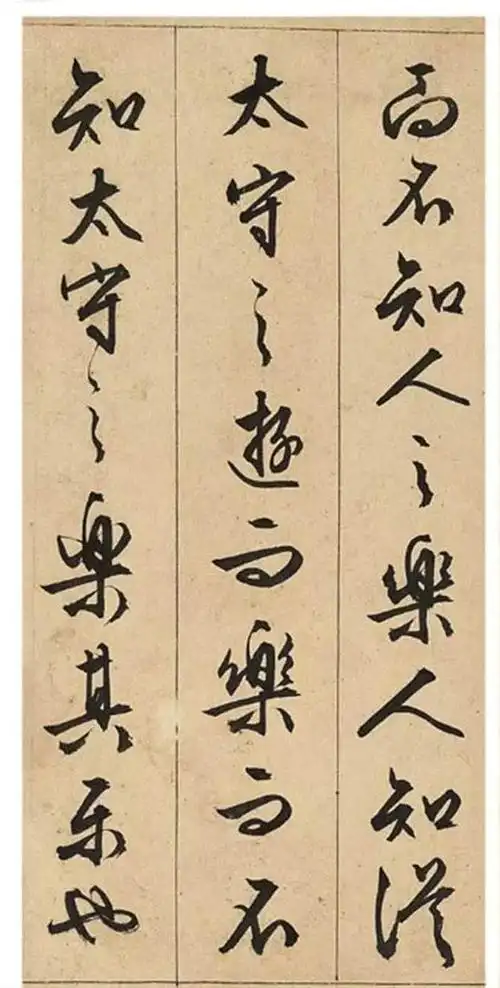 而不知人之樂人知從
太守之遊而樂而不
知太守之樂其樂也